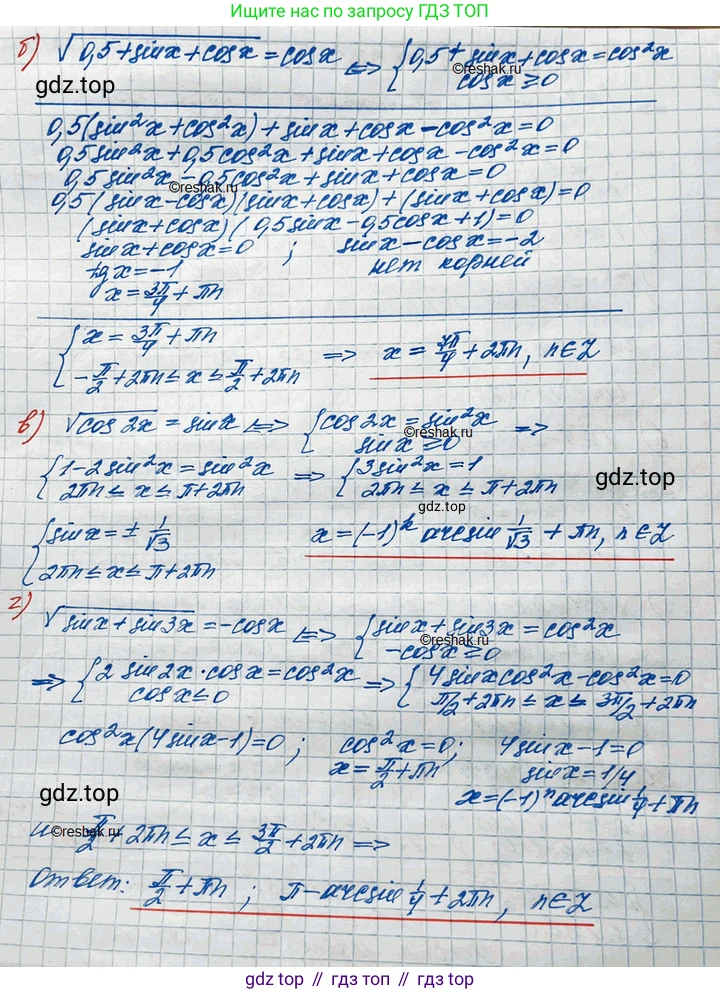 Ищите нас по запросу ГДЗ ТОП
б) √(0,5+sinx+cosx) = cosx <=> { 0,5+sinx+cosx=cos²x
cosx ≥ 0
gdz.top
©reshak.ru
0,5(sin²x+cos²x)+sinx+cosx-cos²x=0
0,5sin²x+0,5cos²x+sinx+cosx-cos²x=0
0,5sin²x-0,5cos²x+sinx+cosx=0
©reshak.ru
0,5(sinx-cosx)(sinx+cosx)+(sinx+cosx)=0
(sinx+cosx)(0,5sinx-0,5cosx+1)=0
sinx+cosx=0 ; sinx-cosx=-2
tgx=-1 нет корней
x=3π/4+πn
{ x=3π/4+πn
-π/2+2πn≤x≤π/2+2πn => x=7π/4+2πn, n∈Z
в) √cos2x = sinx <=> { cos2x=sin²x
sinx≥0 =>
©reshak.ru
{ 1-2sin²x=sin²x => { 3sin²x=1
2πn≤x≤π+2πn 2πn≤x≤π+2πn
gdz.top
gdz.top
{ sinx=±1/√3 x=(-1)ᵏ arcsin 1/√3 + πn, n∈Z
2πn≤x≤π+2πn
г) √(sinx+sin3x) = -cosx <=> { sinx+sin3x=cos²x
-cosx≥0
©reshak.ru
=> { 2sin2x·cosx=cos²x => { 4sinxcos²x-cos²x=0
cosx≤0 π/2+2πn≤x≤3π/2+2πn
cos²x(4sinx-1)=0; cos²x=0; 4sinx-1=0
x=π/2+πn sinx=1/4
gdz.top x=(-1)ⁿarcsin1/4+πn
©reshak.ru
и π/2+2πn≤x≤3π/2+2πn =>
Ответ: π/2+πn; π-arcsin1/4+2πn, n∈Z
gdz.top
gdz.top // гдз.топ // гдзтоп.рф